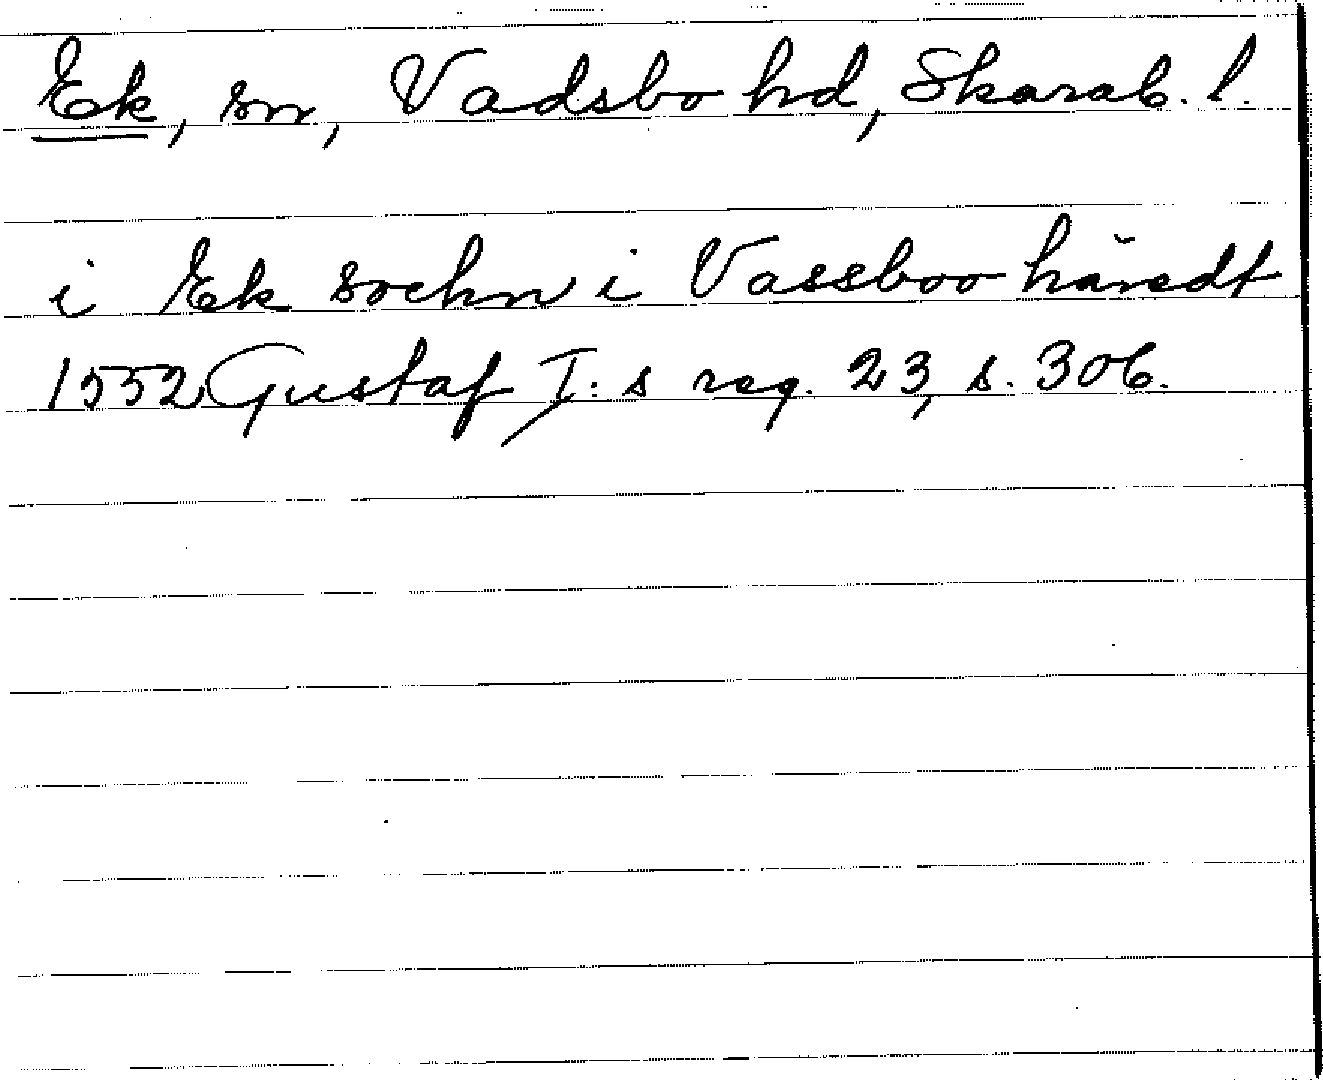 Ek, sn, Vadsbo hd, Skarab. l.
i Ek sochn i Vassboo häredt
1552 Gustaf I:s reg. 23, s. 306.